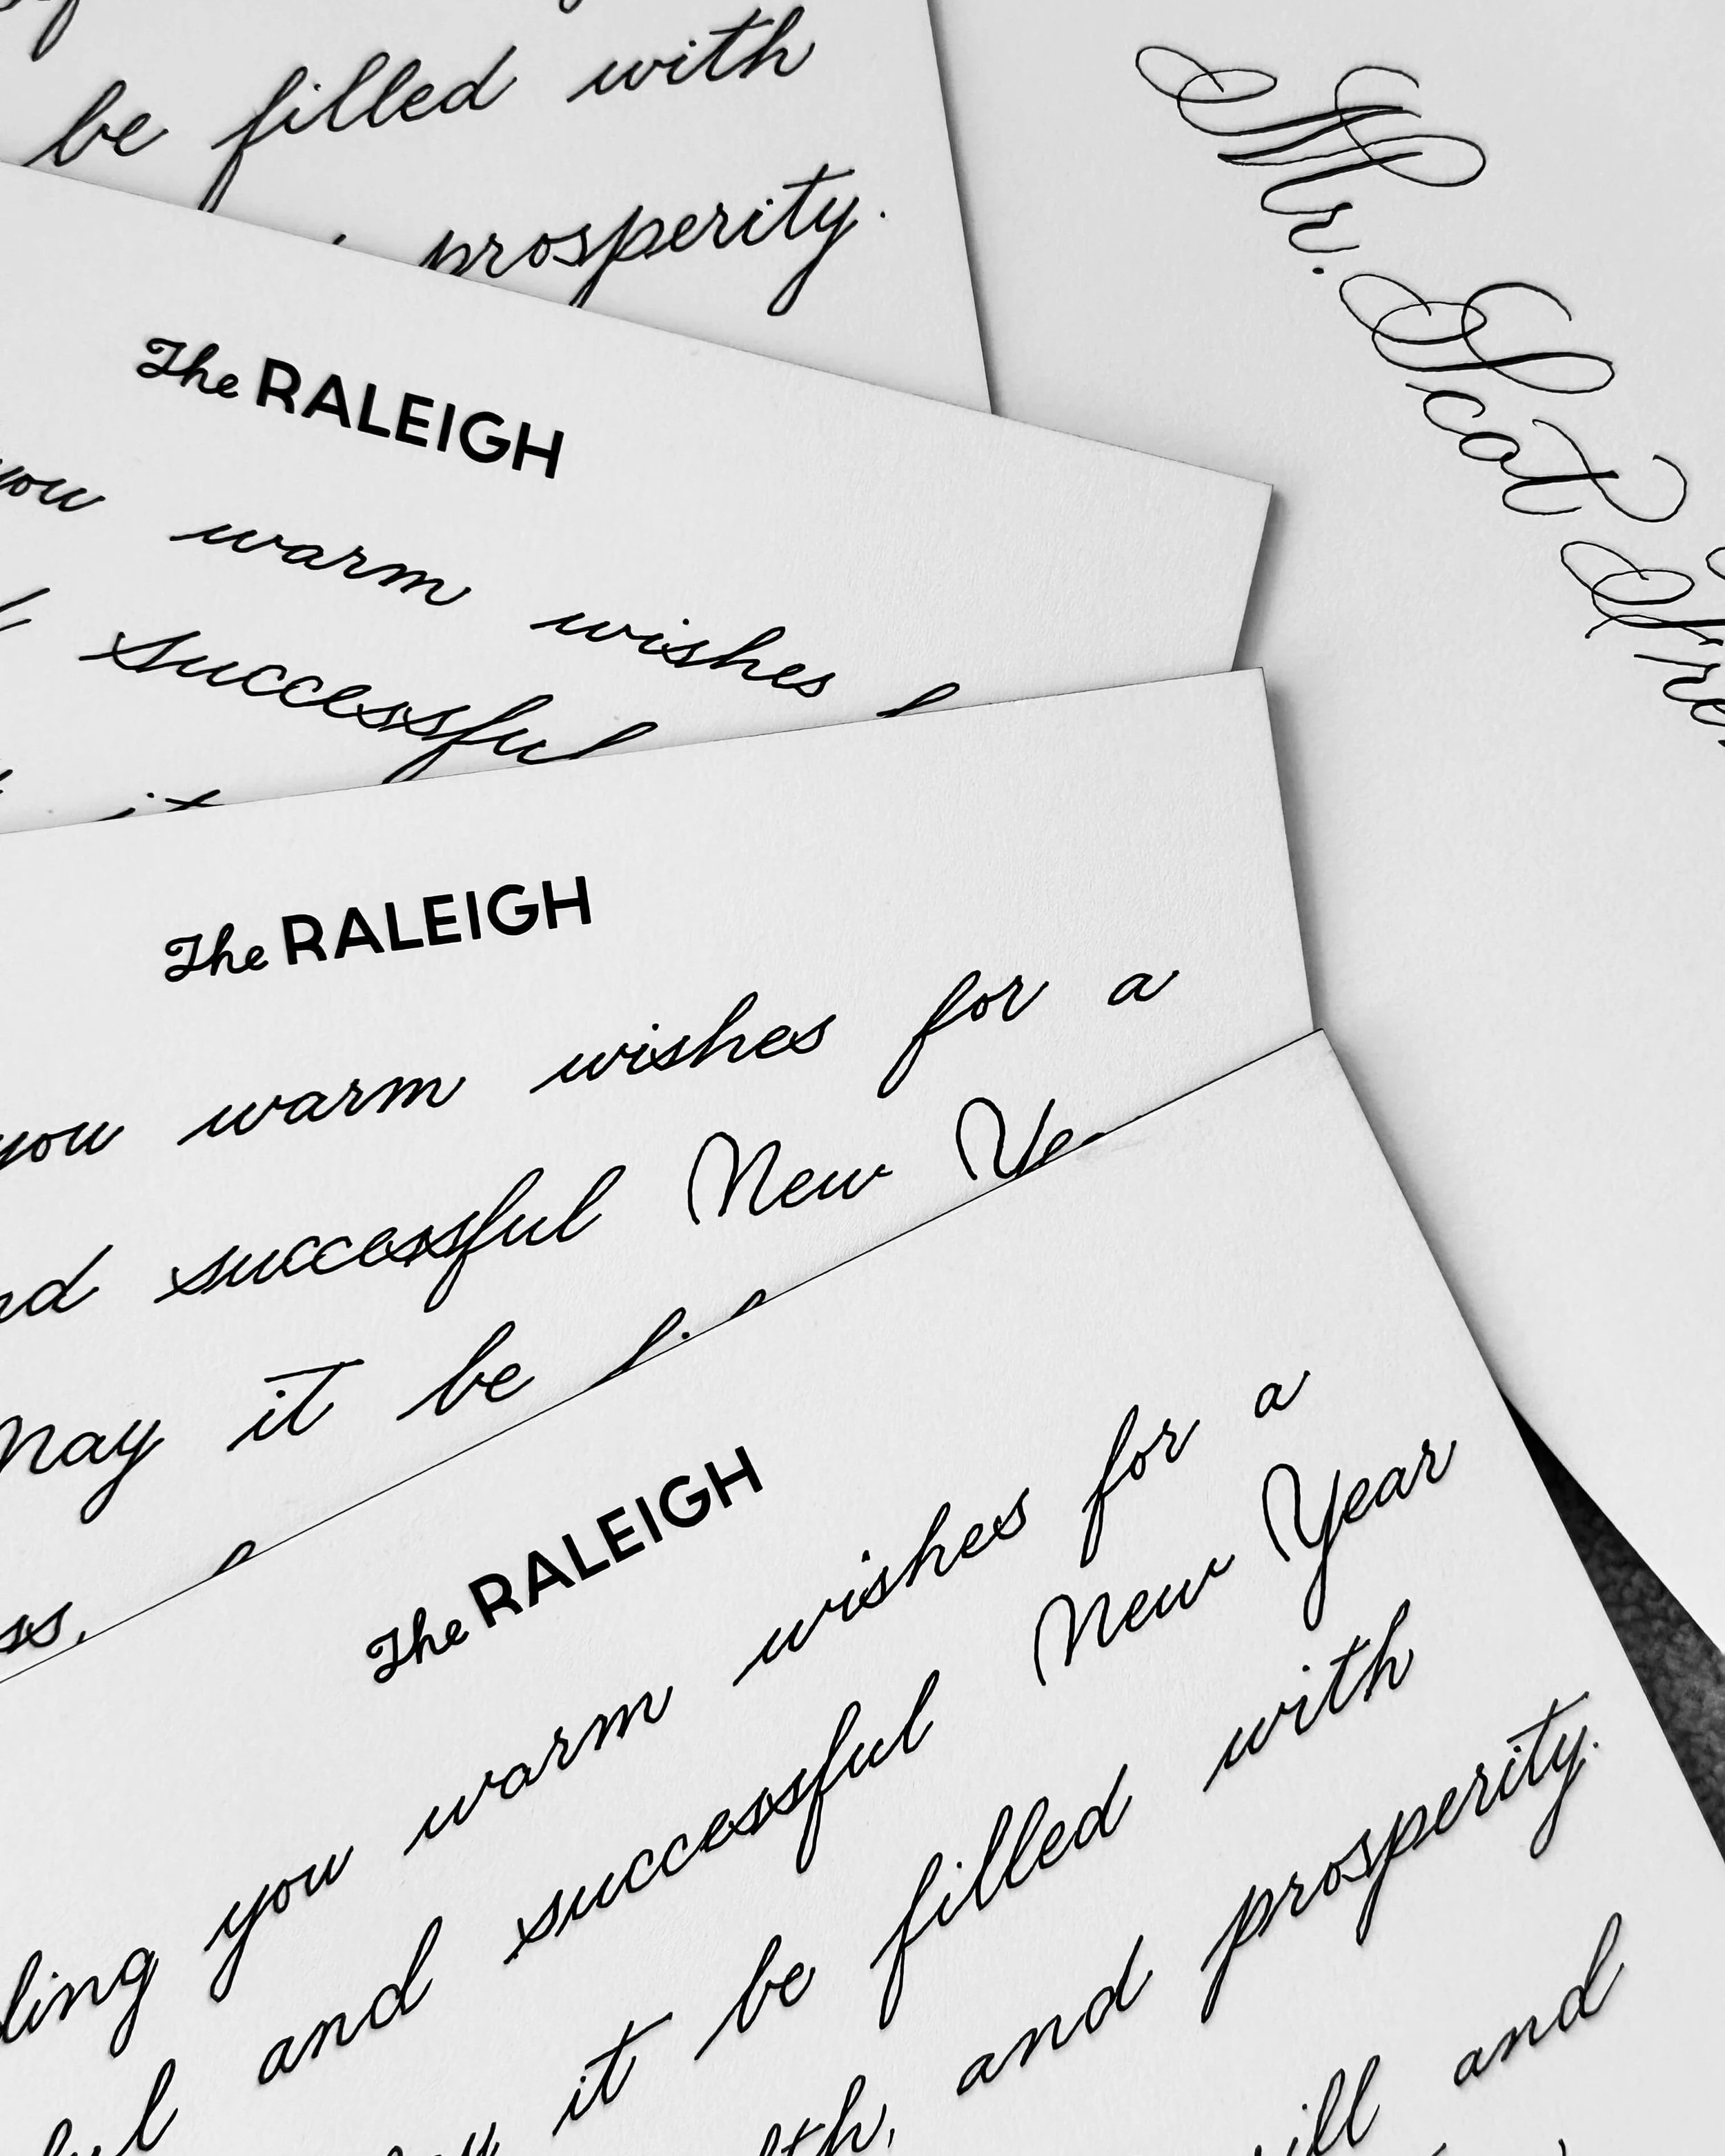 be filled with
prosperity.
Mr. Scot
The RALEIGH
you warm wishes
successful
it
The RALEIGH
you warm wishes for a
successful New
May it be
The RALEIGH
you warm wishes for a
and successful New Year
it be filled with
and prosperity.
and